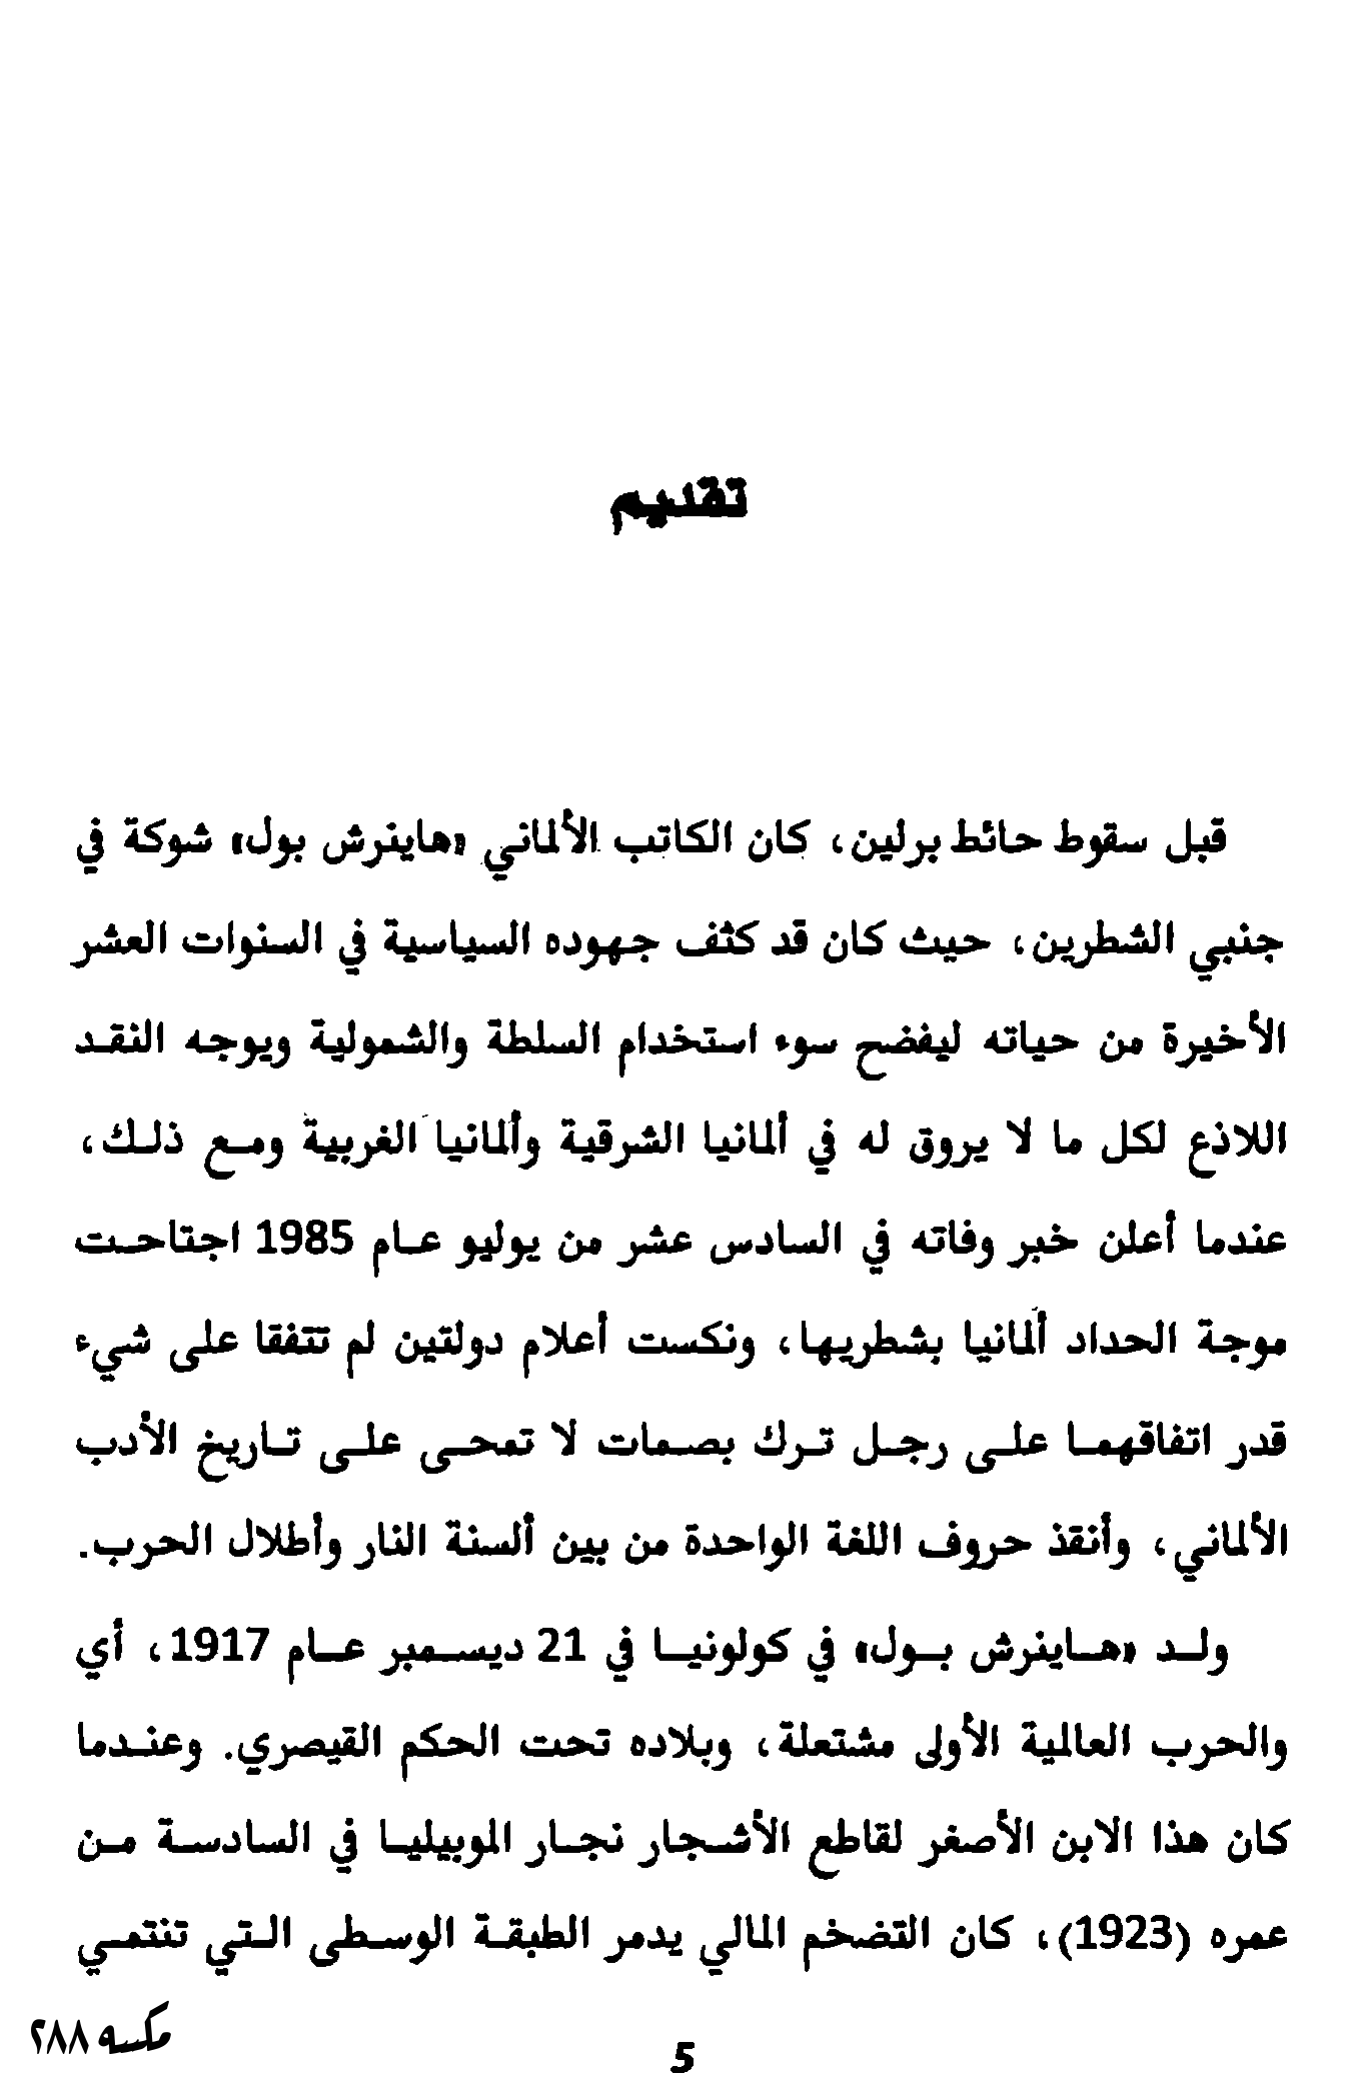 تقديم
قبل سقوط حائط برلين، كان الكاتب الألماني «هاينرش بول» شوكة في
جنبي الشطرين، حيث كان قد كثف جهوده السياسية في السنوات العشر
الأخيرة من حياته ليفضح سوء استخدام السلطة والشمولية ويوجه النقد
اللاذع لكل ما لا يروق له في ألمانيا الشرقية وألمانيا الغربية ومع ذلك،
عندما أعلن خبر وفاته في السادس عشر من يوليو عام 1985 اجتاحت
موجة الحداد ألمانيا بشطريها، ونكست أعلام دولتين لم تتفقا على شيء
قدر اتفاقهما على رجل ترك بصمات لا تمحى على تاريخ الأدب
الألماني، وأنقذ حروف اللغة الواحدة من بين ألسنة النار وأطلال الحرب.
ولد «هاينرش بول» في كولونيا في 21 ديسمبر عام 1917، أي
والحرب العالمية الأولى مشتعلة، وبلاده تحت الحكم القيصري. وعندما
كان هذا الابن الأصغر لقاطع الأشجار نجار الموبيليا في السادسة من
عمره (1923)، كان التضخم المالي يدمر الطبقة الوسطى التي تنتمي
٢٨٨
5